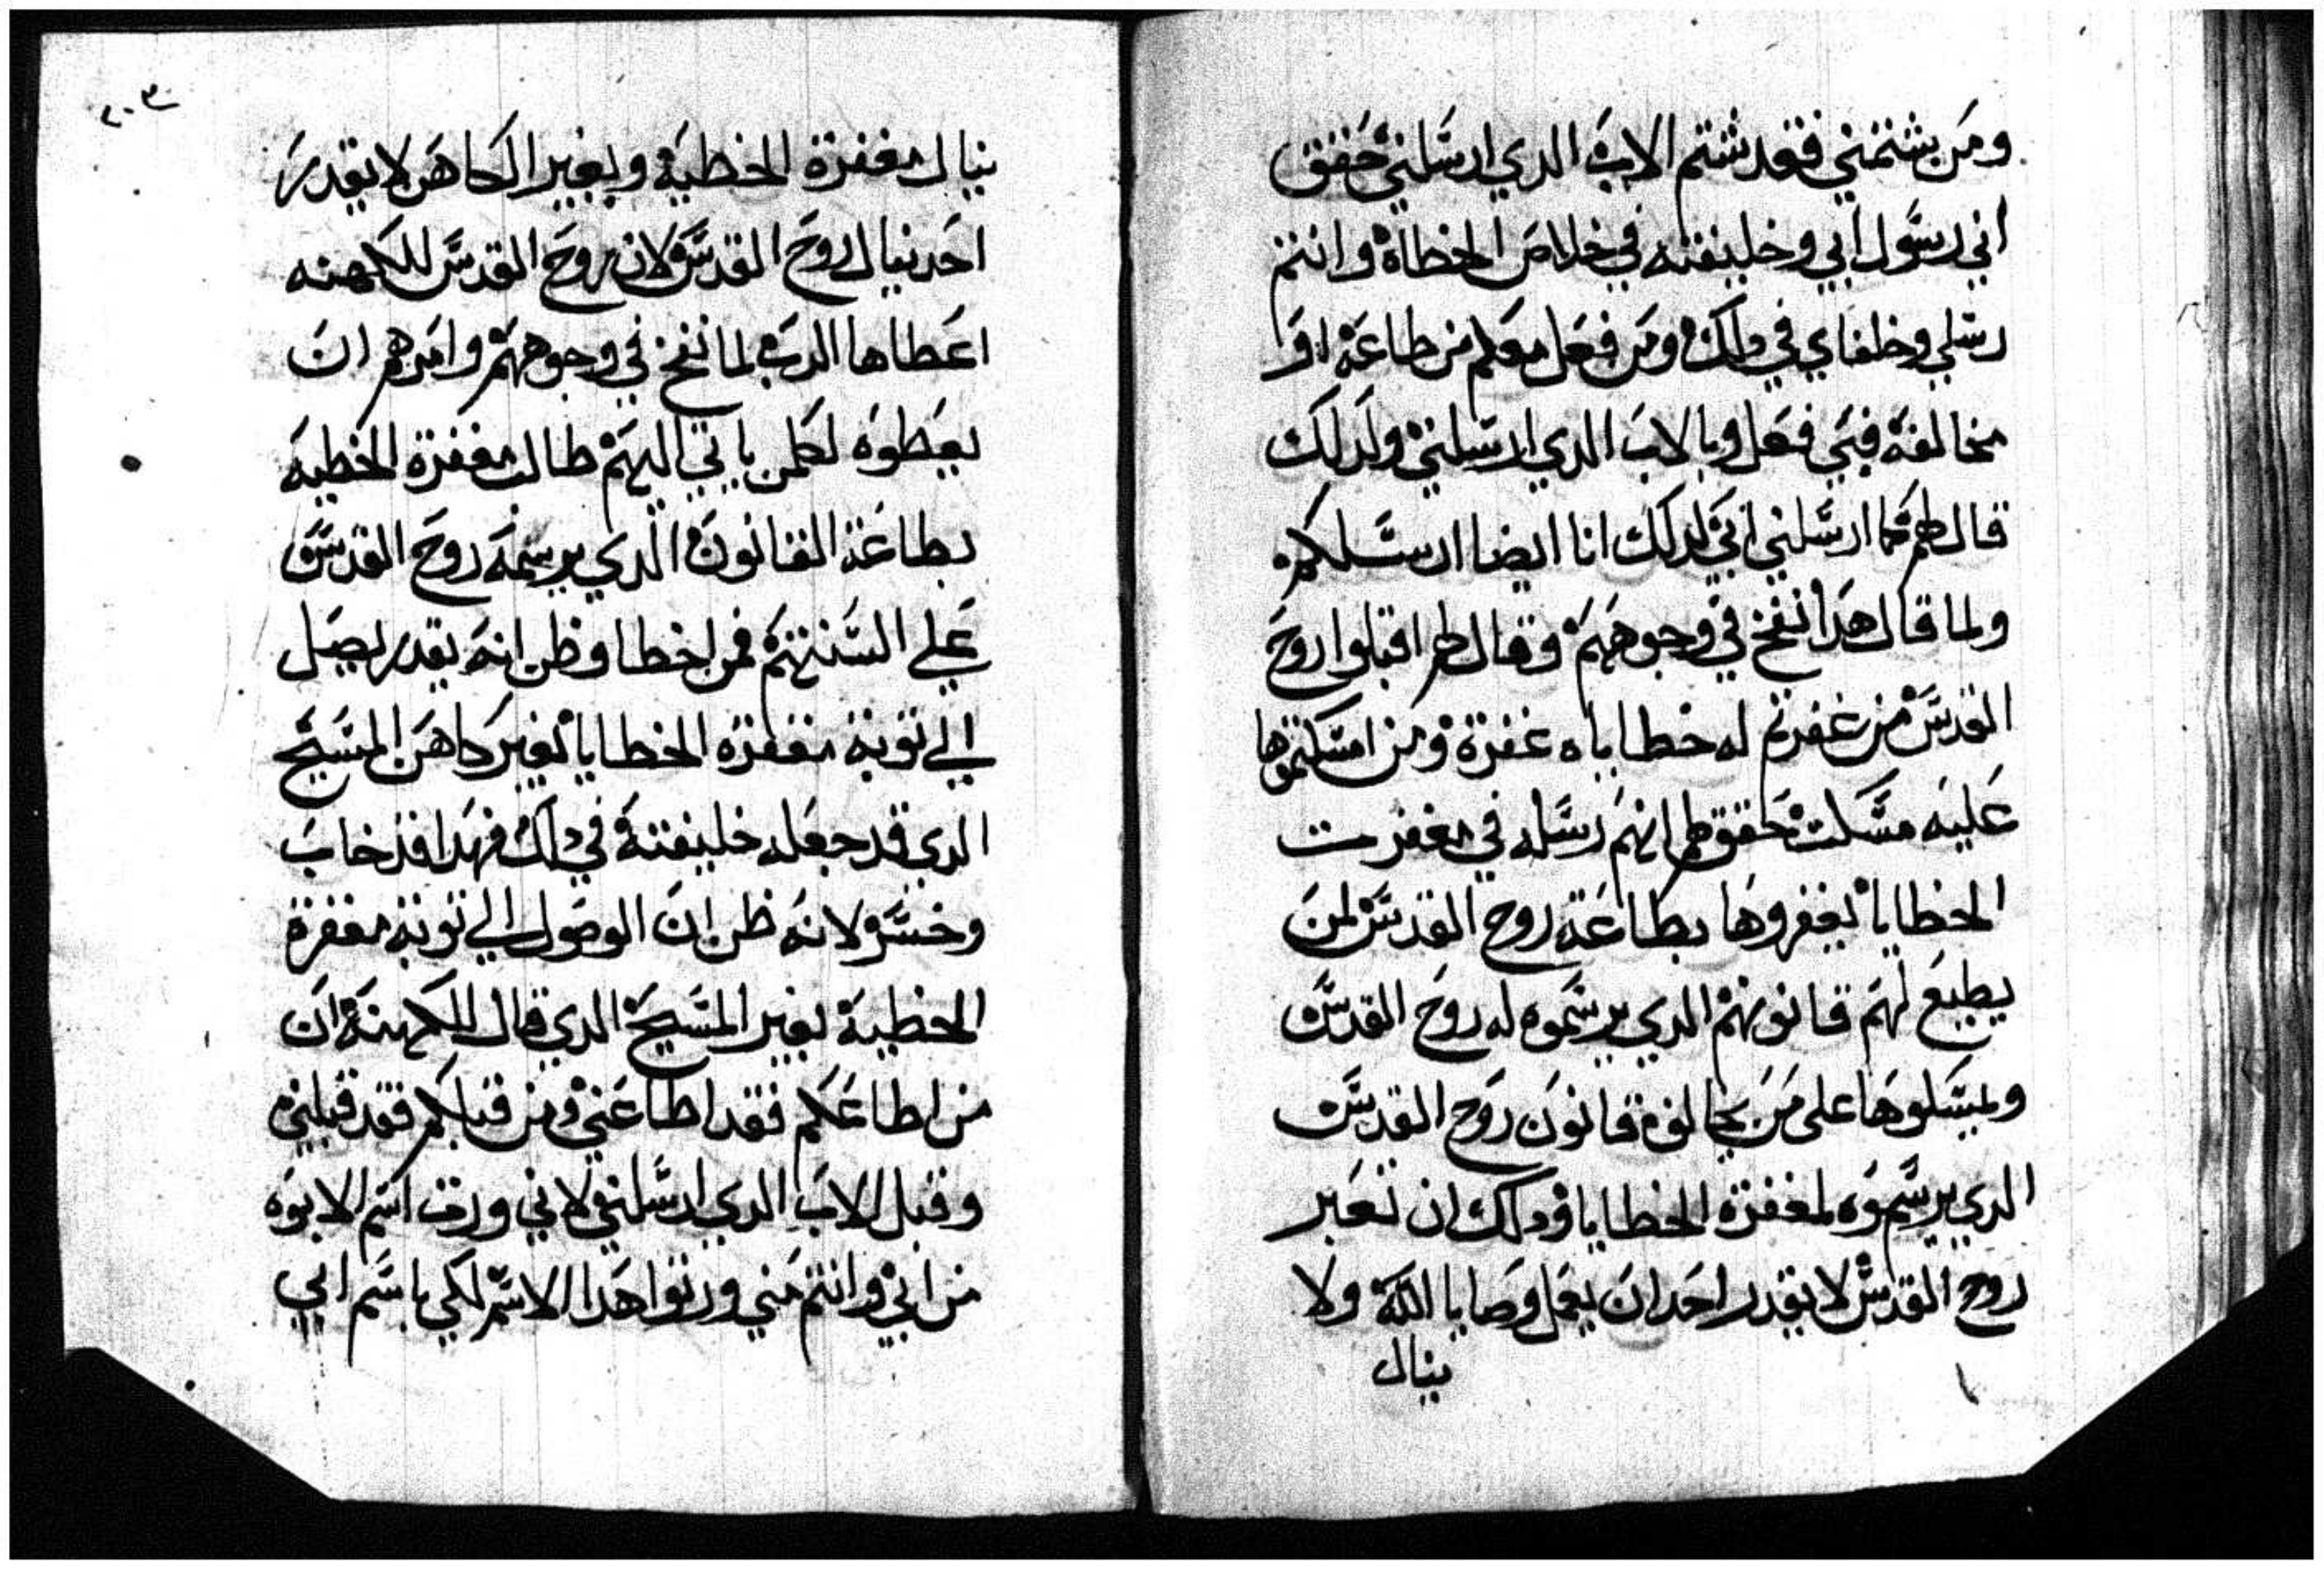 ومن يشتمني فقد شتم الاب الدي ارسلني حقق
اني رسول ابي وخليفته في خلاص الخطاة وانتم
رسلي وخلفاي في دلك ومن فعل معكم من طاعة او
مخالفة فبي فعل وبالاب الدي ارسلني ولدلك
قال لهم كما ارسلني ابي لدلك انا ايضا ارسلكم
ولما قال هدا نفخ في وجوههم وقال لهم اقبلوا روح
القدس من غفرتم له خطاياه غفرة ومن امسكتموها
عليه مسكت حقق لهم انهم رسله في مغفرت
الخطايا يغفروها بطاعة روح القدس لمن
يطيع لهم قانونهم الدي يرسموه له روح القدس
ويمسكوها على من يخالفه قانون روح القدس
الدي يرسموه لمغفرة الخطايا ودلك ان بغير
روح القدس لا يقدر احد ان يعمل وصايا الله ولا
ينال
٢٠٣
ينال مغفرة الخطية وبغير الكاهن لا يقدر
احد ينال روح القدس لان روح القدس للكهنه
اعطاها الرب لما نفخ في وجوههم وامرهم ان
يعطوه لكلمن ياتي اليهم طالب مغفرة الخطية
بطاعة القانون الدي يرسمه روح القدس
علي السنتهم فمن اخطا وظن انه يقدر يصل
الي توبة مغفرة الخطايا بغير كاهن المسيح
الدي قد جعله خليفته في دلك فهدا قد خاب
وخسر لانه ظن ان الوصول الي توبة مغفرة
الخطية بغير المسيح الدي قال للكهنة ان
من اطاعكم فقد اطاعني ومن قبلكم فقد قبلني
وقبل الاب الدي ارسلني لاني ورثت اسم الابوه
من ابي وانتم مني ورثوا هدا الاسم لكي باسم ابي